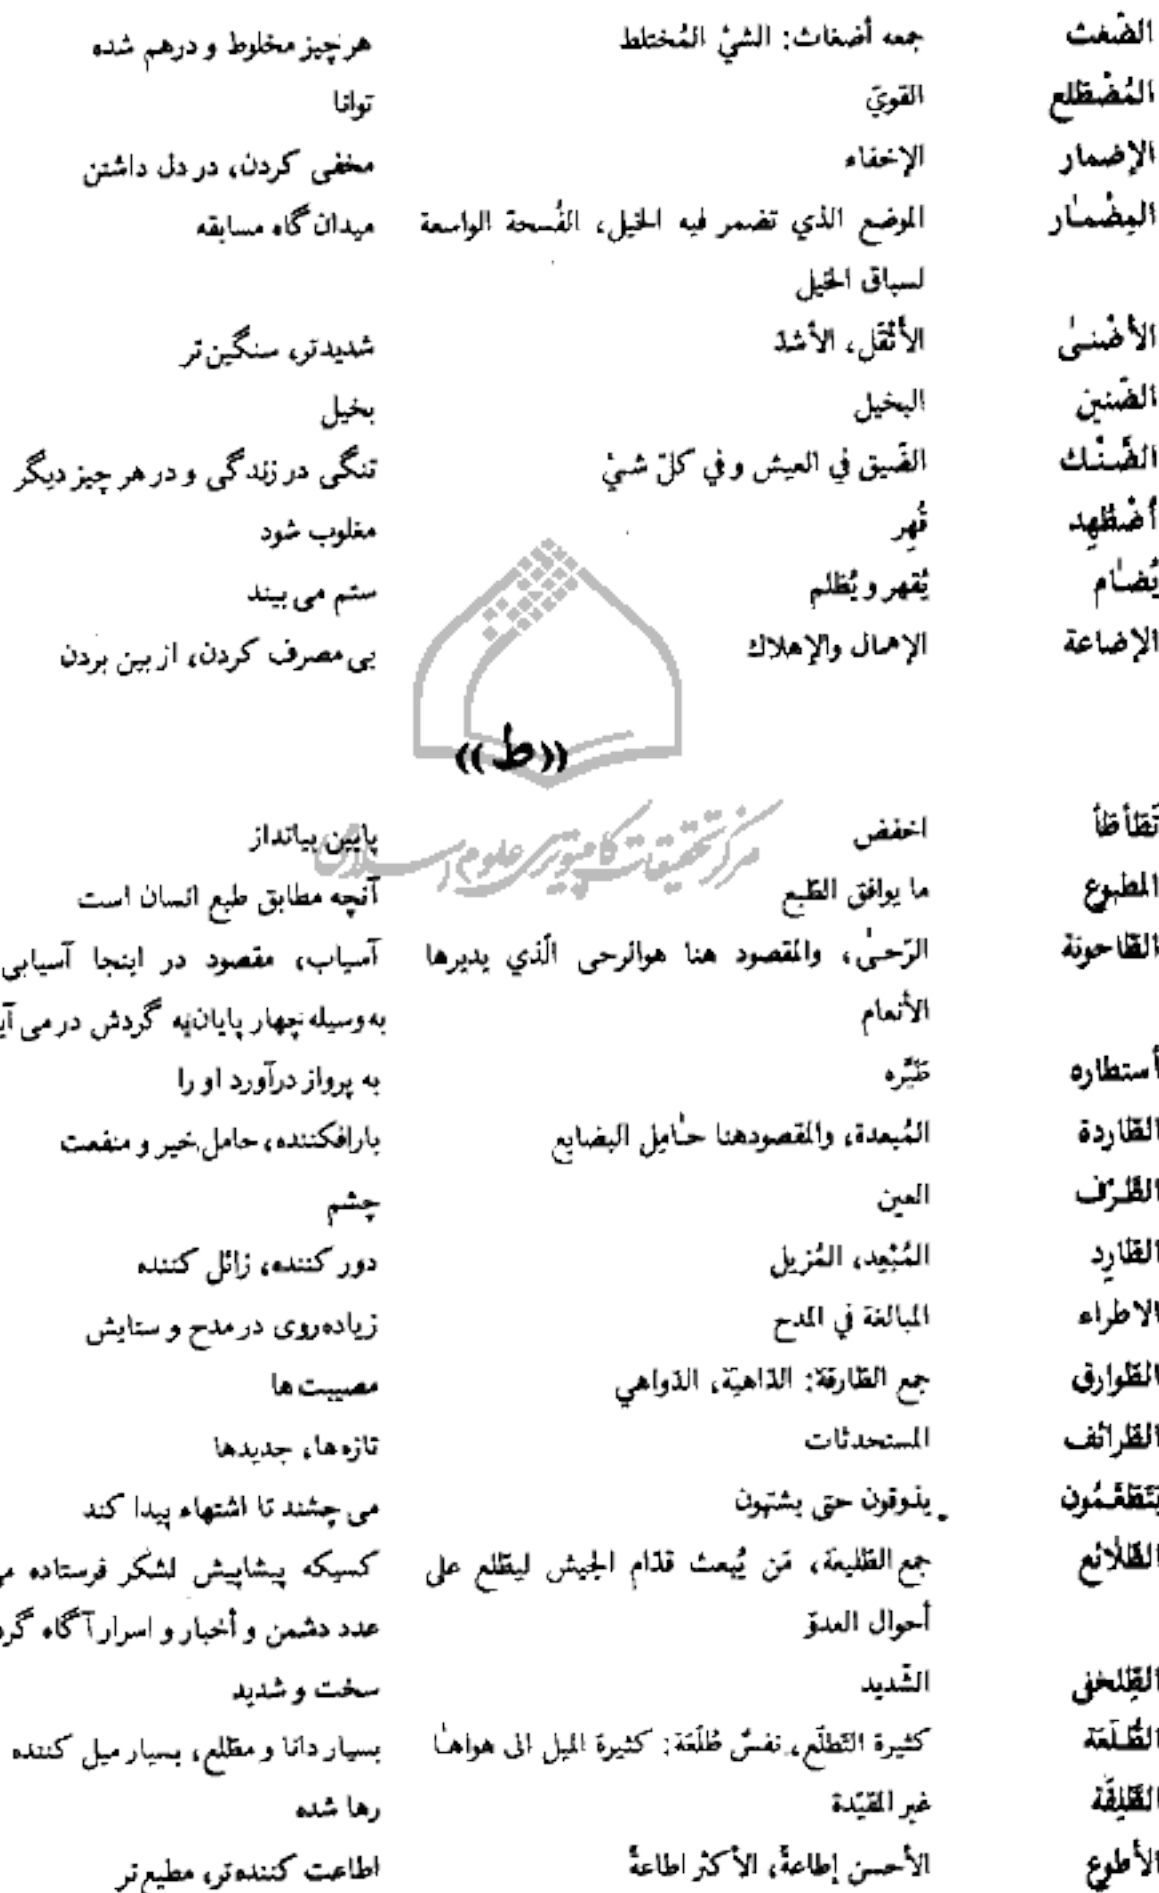 الضّغث جمعه أضغاث: الشيْ المُختلط هرچیز مخلوط و درهم شده
المُضْطلع القويّ توانا
الإضمار الإخفاء مخفی کردن، در دل داشتن
المِضْمار الموضع الذي تضمر فيه الخيل، الفُسحة الواسعة میدان گاه مسابقه
لسباق الخيل
الأضْنىٰ الأثْقَل، الأشدّ شدیدتر، سنگین‌تر
الضّنين البخيل بخیل
الضَّنْك الضّيق في العيش و في كلّ شيْ تنگی در زندگی و در هر چیز دیگر
أضْطُهِد قُهِر مغلوب شود
يُضام يُقهر و يُظلم ستم می بیند
الإضاعة الإهمال والإهلاك بی مصرف کردن، از بین بردن
((ط))
مرکز تحقیقات کامپیوتری علوم اسلامی
تَطأطَأ اخفض پایین بیانداز
المطبوع ما يوافق الطّبع آنچه مطابق طبع انسان است
الطّاحونة الرّحىٰ، والمقصود هنا هوالرحى الّذي يديرها آسیاب، مقصود در اینجا آسیابی
الأنعام به‌وسیله چهار پایان به گردش در می
أستطاره طَيَّره به پرواز درآورد او را
الطّاردة المُبعدة، والمقصودهنا حٰامِل البضايع بارافکننده، حامل خیر و منفعت
الطَّرْف العين چشم
الطّارِد المُبْعِد، المُزيل دور کننده، زائل کننده
الاطراء المبالغة في المدح زیاده‌روی در مدح و ستایش
الطّوارق جمع الطّارقة: الدّاهيّة، الدّواهي مصیبت ها
الطّرائف المستحدثات تازه‌ها، جدیدها
يَتَطَعَّمُون يذوقون حتى يشتهون می چشند تا اشتهاء پیدا کند
الطّلائع جمع الطّليعة، مَن يُبعث قدّام الجيش ليطّلع على کسیکه پیشاپیش لشکر فرستاده
أحوال العدوّ عدد دشمن و أخبار و اسرار آگاه
الطِّلخف الشّديد سخت و شدید
الطُّلَعَة كثيرة التّطلّع، نفسٌ طُلَعَة: كثيرة الميل الى هواهٰا بسیار دانا و مطّلع، بسیار میل کننده
الطَّلِيقَة غير المقيّدة رها شده
الأطوع الأحسن إطاعةً، الأكثر اطاعةً اطاعت کننده‌تر، مطیع‌تر